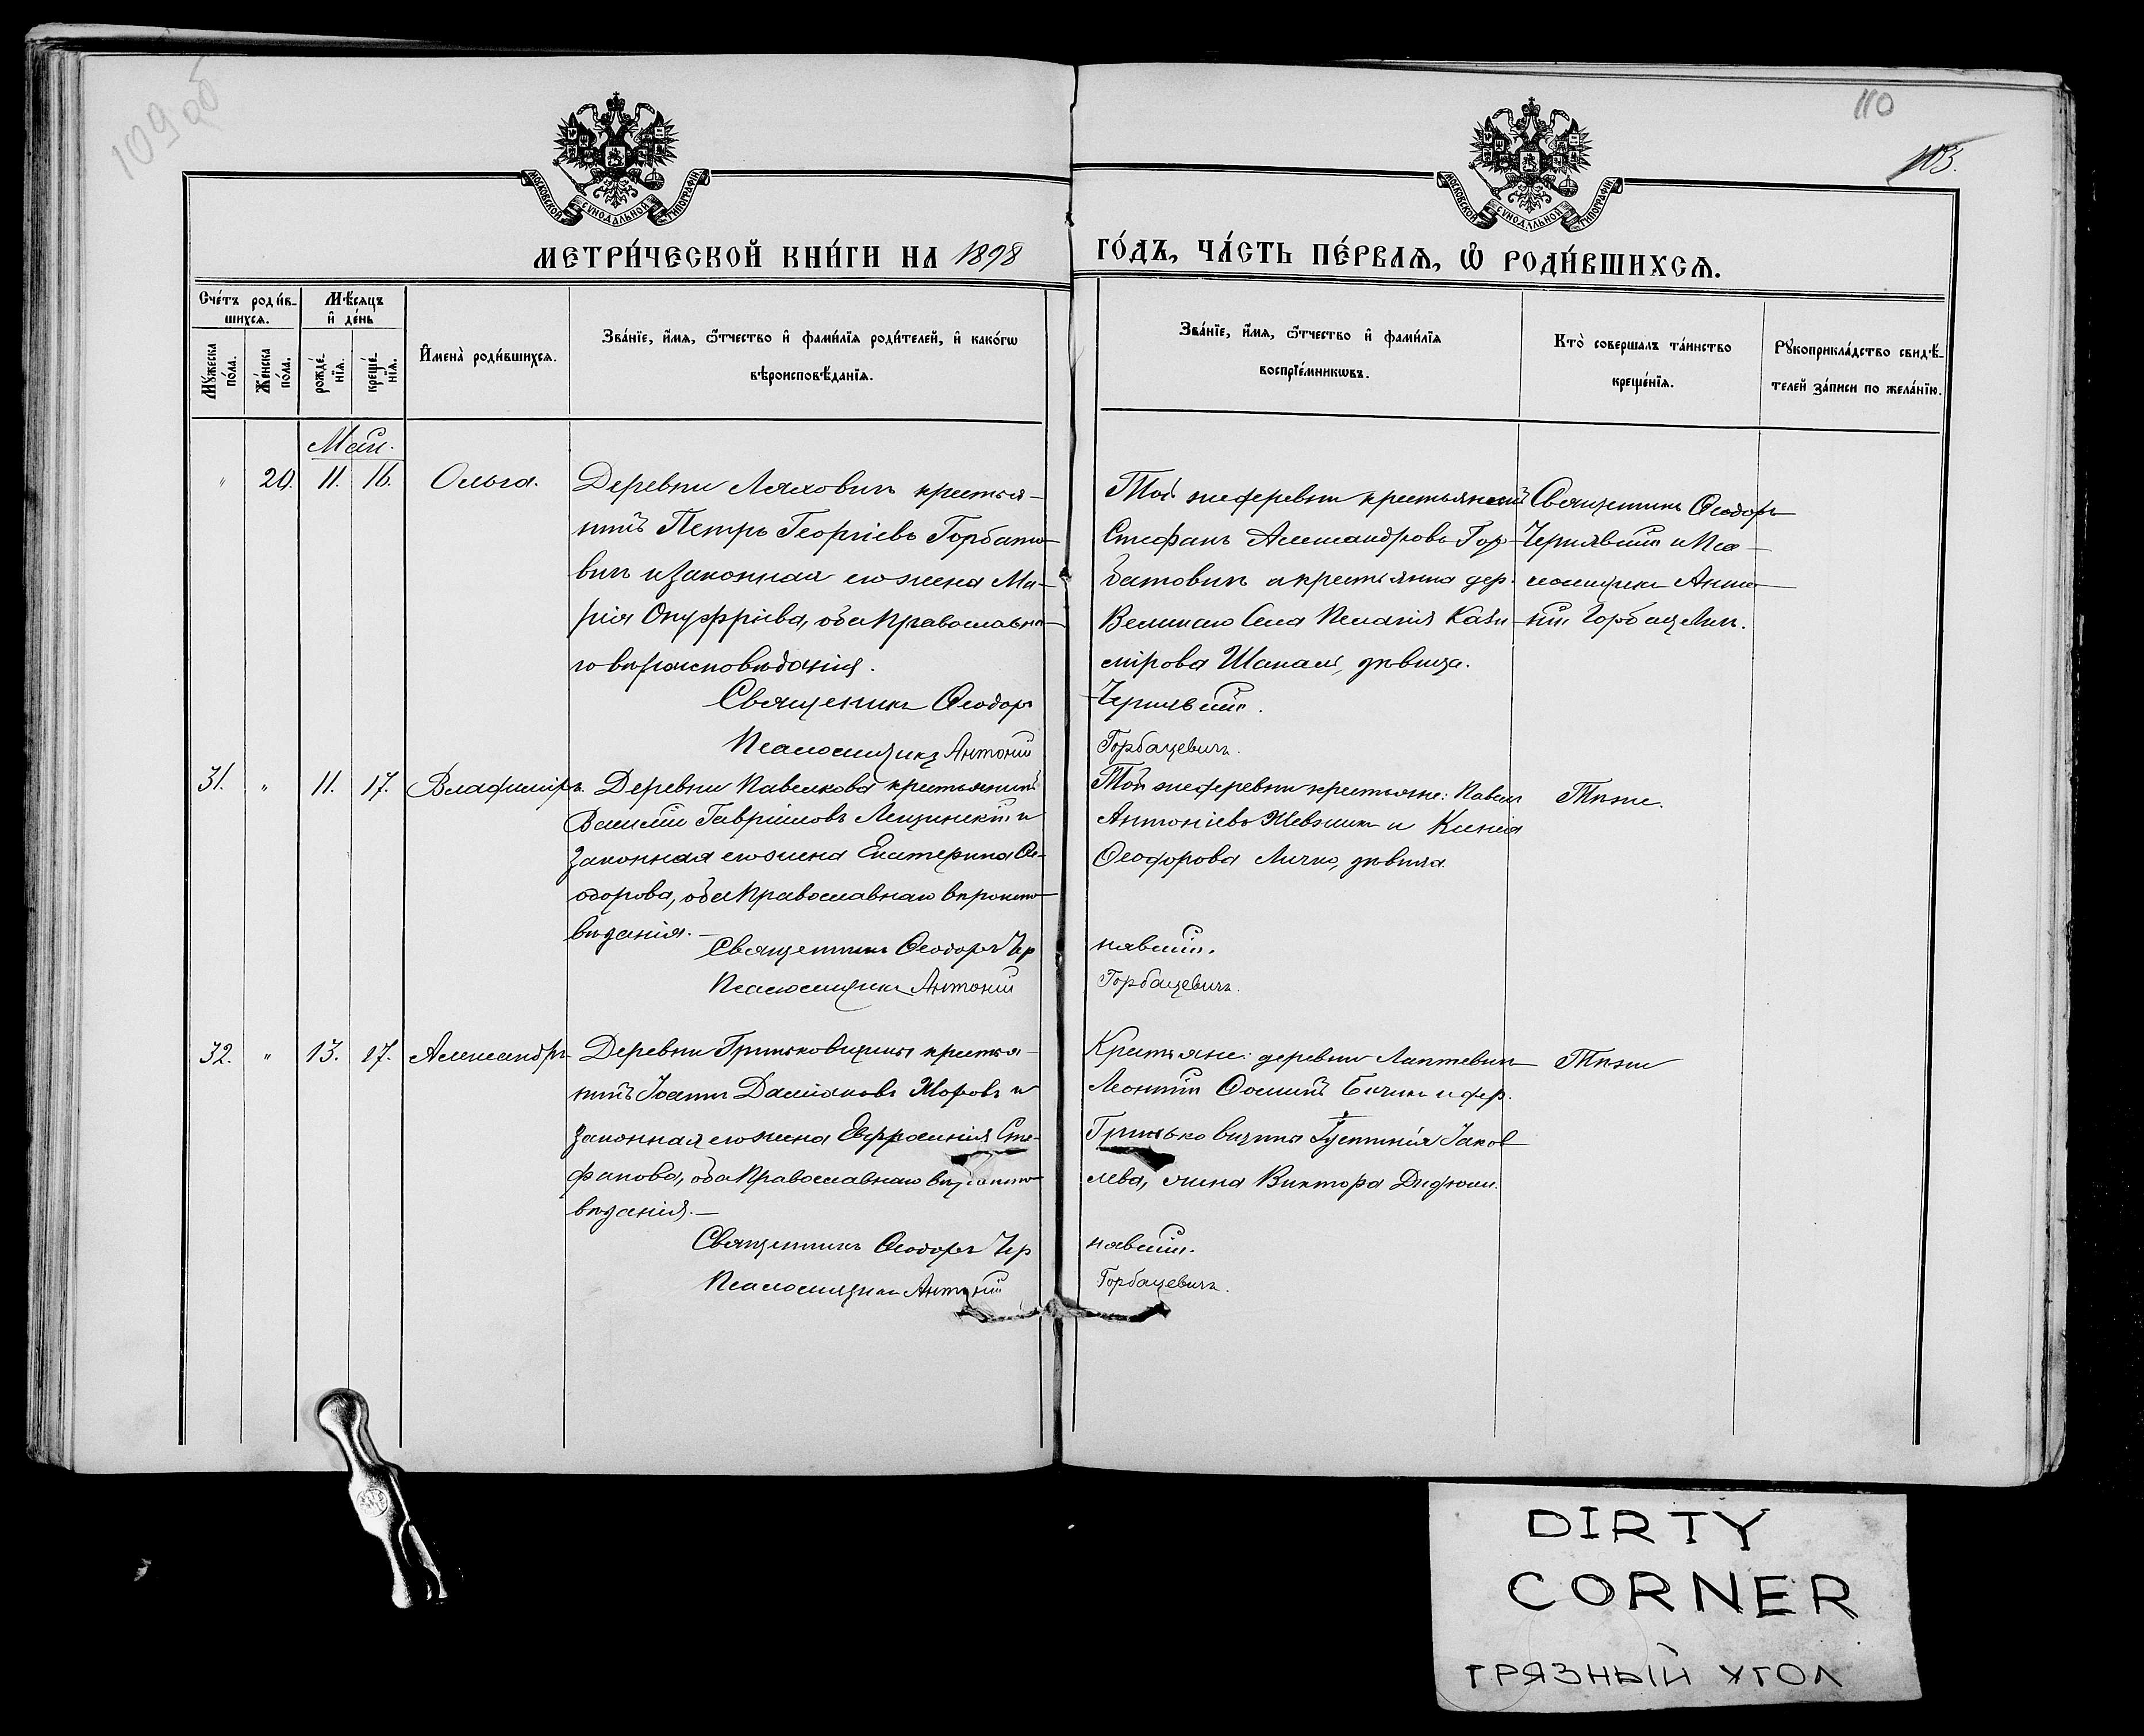 109 об
110
103.
МОСКОВСКОЙ СѴНОДАЛЬНОЙ ТИПОГРАФІИ
МОСКОВСКОЙ СѴНОДАЛЬНОЙ ТИПОГРАФІИ
МЕТРИ́ЧЕСКОЙ КНИ́ГИ НА 1898
ГО́ДЪ, ЧА́СТЬ ПЕ́РВАѦ, Ѡ РОДИ́ВШИХСѦ.
Сче́тъ роди́в-
шихсѧ.
Мѣ́сяцъ
и де́нь
Мꙋ́жеска
по́ла.
Же́нска
по́ла.
рожде́-
нїѧ.
креще́-
нїѧ.
Имена̀ роди́вшихсѧ.
Зва́нїе, и́мѧ, ѻ́тчество и фами́лїѧ роди́телей, и како́гѡ
вѣроисповѣ́данїѧ.
Зва́нїе, и́мѧ, ѻ́тчество и фами́лїѧ
воспрїе́мникѡвъ.
Кто̀ соверша́лъ та́инство
креще́нїѧ.
Рꙋкоприкла́дство свидѣ́-
телей за́писи по жела́нїю.
Май.
" 20. 11. 16. Ольга.
Деревни Ляховичъ крестья-
нинъ Петръ Георгіевъ Горбато-
вичъ и законная его жена Ма-
рія Онуфріева, оба православна-
го вѣроисповѣданія.
Священникъ Ѳеодоръ
Псаломщикъ Антоній
Той же деревни крестьянинъ
Стефанъ Александровъ Гор-
батовичъ и крестьянка дер.
Великаго Села Пелагія Кази-
мірова Шакаль, дѣвица.
Чернявскій.
Горбацевичъ.
Священникъ Ѳеодоръ
Чернявскій и Пса-
ломщикъ Анто-
ній Горбацевичъ.
31. " 11. 17. Владиміръ.
Деревни Павлюкова крестьянинъ
Василій Гавріиловъ Лещинскій и
законная его жена Екатерина Ѳе-
одорова, оба православнаго вѣроиспо-
вѣданія.—
Священникъ Ѳеодоръ Чер
Псаломщикъ Антоній
Той же деревни крестьяне: Павелъ
Антоніевъ и Ксенія
Ѳеодорова Личко, дѣвица.
нявскій.
Горбацевичъ.
Тѣже.
32. " 13. 17. Александръ
Деревни Гриньковщины крестья-
нинъ Іоаннъ Даміановъ Жоровъ и
законная его жена Евфросинія Сте-
фанова, оба православнаго вѣроиспо-
вѣданія.—
Священникъ Ѳеодоръ Чер
Псаломщикъ Антоній
Крестьяне: деревни Лаптевичъ
Леонтій Ѳоминъ Бичикъ и дер.
Гриньковщины Іустинія Іаков
лева, жена Виктора Дидюли.
нявскій.
Горбацевичъ.
Тѣже
DIRTY
CORNER
ГРЯЗНЫЙ УГОЛ